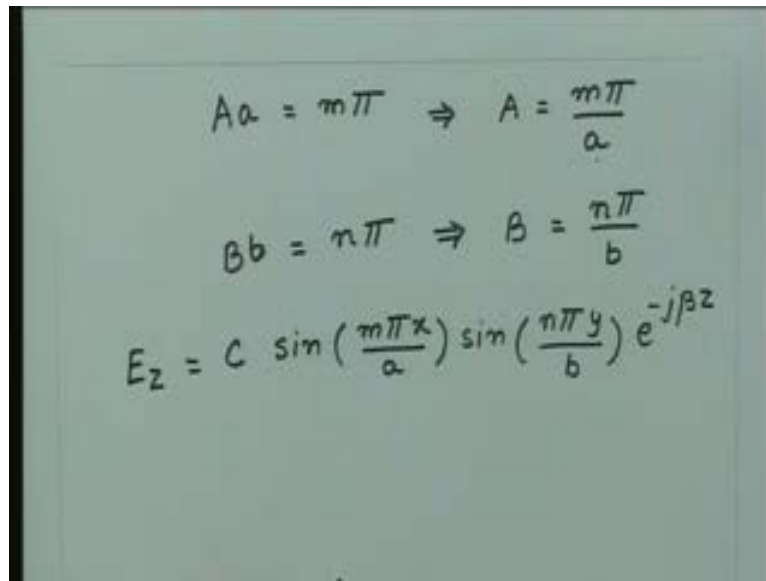 Aa = mπ ⇒ A = mπ/a
Bb = nπ ⇒ B = nπ/b
E_z = C sin(mπx/a) sin(nπy/b) e^{-jβz}